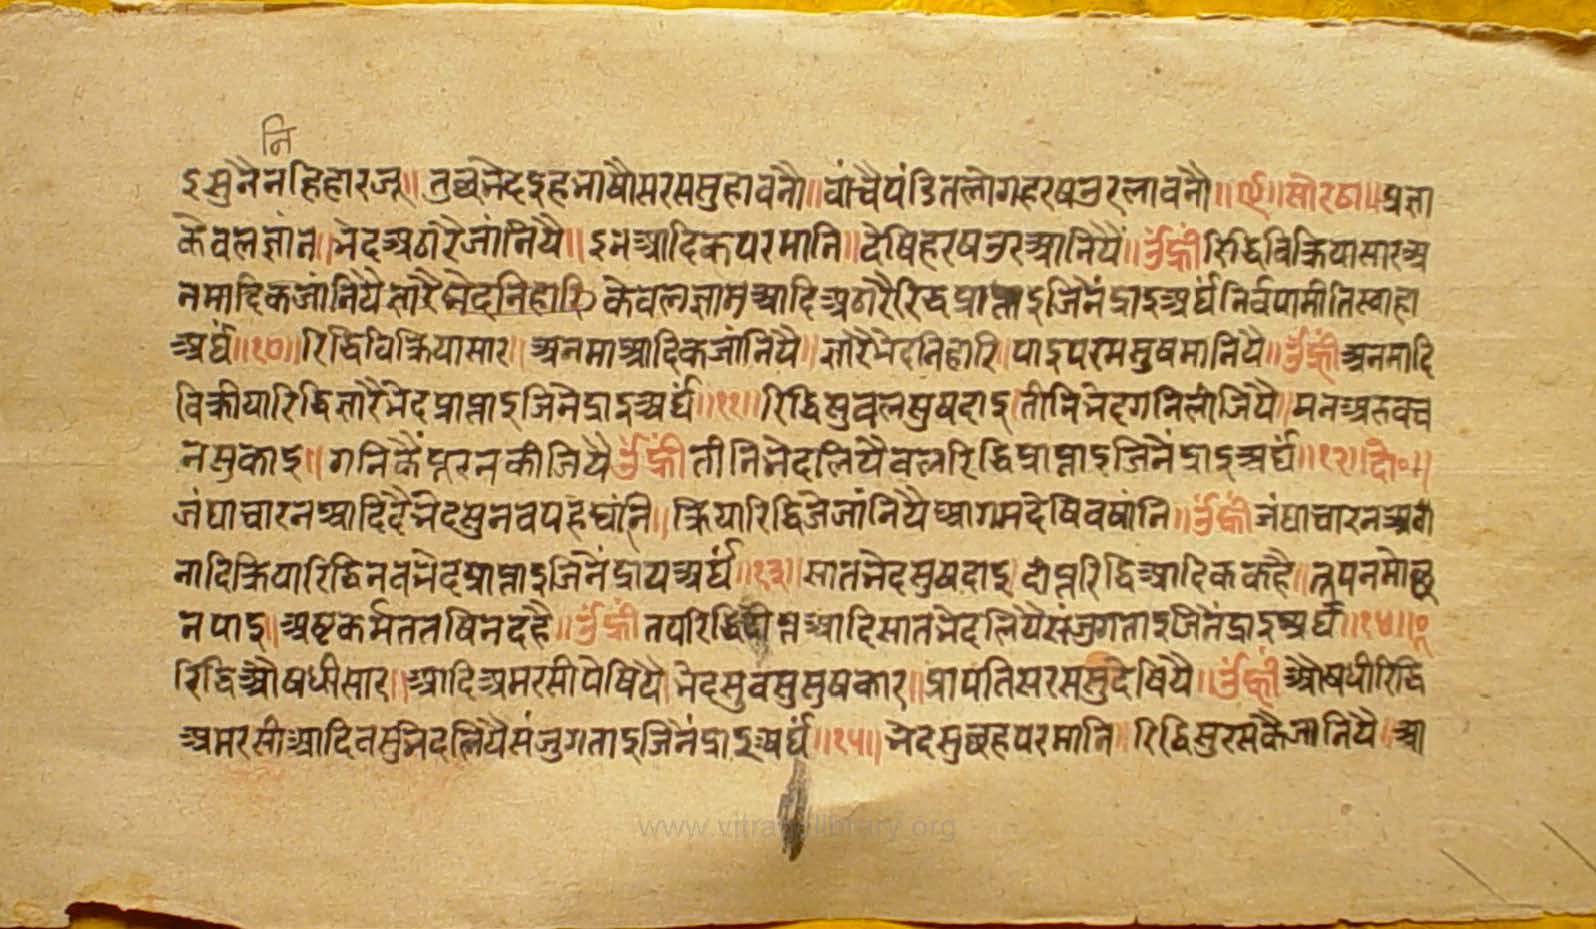 नि
इसुनैनहिहारजू॥ तुछभेदइहभाषौसरससुहावनौ॥ वांचैपंडितलोगहरषउरलावनौ॥९॥सोरठा॥प्रज्ञा
केवलज्ञांन॥ भेदअठारैजांनियै॥ इनआदिकपरमानि॥ देषिहरषउरआनियै॥ उंह्रींरिद्धिविक्रियासारअ
नमादिकजांनियै ग्यारैभेदनिहारि केवलज्ञानआदिअठारैरिद्धप्राप्ताइजिनेंद्राइअर्घंनिर्वपामीतिस्वाहा
अर्घं॥१०॥रिद्धिविक्रियासार॥ अनमाआदिकजांनियै॥ ग्यारैभेदनिहारि॥ पाइपरमसुषमानियै॥ उंह्रींअनमादि
विक्रीयारिद्धिग्यारैभेदप्राप्ताइजिनेंद्राइअर्घं॥११॥रिद्धिसुवलसुषदाइ॥तीनिभेदगनिलीजियै॥मनअरुवच
नसुकाइ॥ गनिकैंपूरनकीजियै उंह्रींतीनिभेदलियैवलरिद्धिप्राप्ताइजिनेंद्राइअर्घं॥१२॥दो॰॥
जंघाचारनआदिदैभेदसुनवपहचांनि॥ क्रियारिद्धिजेजांनियैआगमदेषिवषांनि॥ उंह्रींजंघाचारनअवा
नादिक्रियारिद्धिनवभेदप्राप्ताइजिनेंद्रायअर्घं॥१३॥सातभेदसुषदाइ॥ दीप्तरिद्धिआदिककहै॥
नपाइ॥ अष्टकर्मततषिनदहै॥ उंह्रींतपरिद्धिदीप्तआदिसातभेदलियैसंजुगताइजिनेंद्राइअर्घं॥१४॥
रिद्धिऔषधीसार॥आदिअमरसीपेषियै॥भेदसुवसुसुषकार॥प्रापतिसरससुदेषियै॥ उंह्रींऔषधीरिद्धि
अमरसीआदिवसुभेदलियैसंजुगताइजिनेंद्राइअर्घं॥१५॥ भेदसुछहपरमानि॥ रिद्धिसुरसकैजानियै॥आ
www.vitraglibrary.org